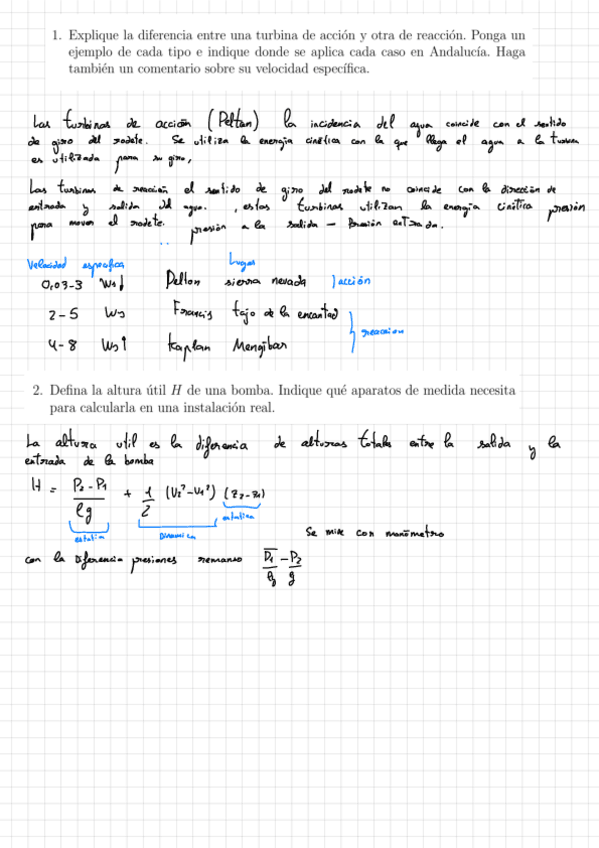 1. Explique la diferencia entre una turbina de acción y otra de reacción. Ponga un
ejemplo de cada tipo e indique donde se aplica cada caso en Andalucía. Haga
también un comentario sobre su velocidad específica.
Las turbinas de acción (Pelton) la incidencia del agua coincide con el sentido
de giro del rodete. Se utiliza la energia cinética con la que llega el agua a la turbina
es utilizada para su giro,
Las turbinas de reacción el sentido de giro del rodete no coincide con la dirección de
entrada y salida del agua. , estas turbinas utilizan la energia cinética presión
para mover el rodete. presión a la salida - Presión entrada.
Velocidad especifica Lugar
0,03-3 Ws↓ Pelton sierra nevada ] acción
2-5 Ws Francis tajo de la encantad
reaccion
4-8 Ws↑ Kaplan Mengibar
2. Defina la altura útil H de una bomba. Indique qué aparatos de medida necesita
para calcularla en una instalación real.
La altura util es la diferencia de alturas totales entre la salida y la
entrada de la bomba
H = P₂-P₁/ρg + 1/2 (V₂²-V₁²) (z₂-z₁)
estatica Dinamica estatica
Se mide con manómetro
con la diferencia presiones remanso P₁/ρg - P₂/g